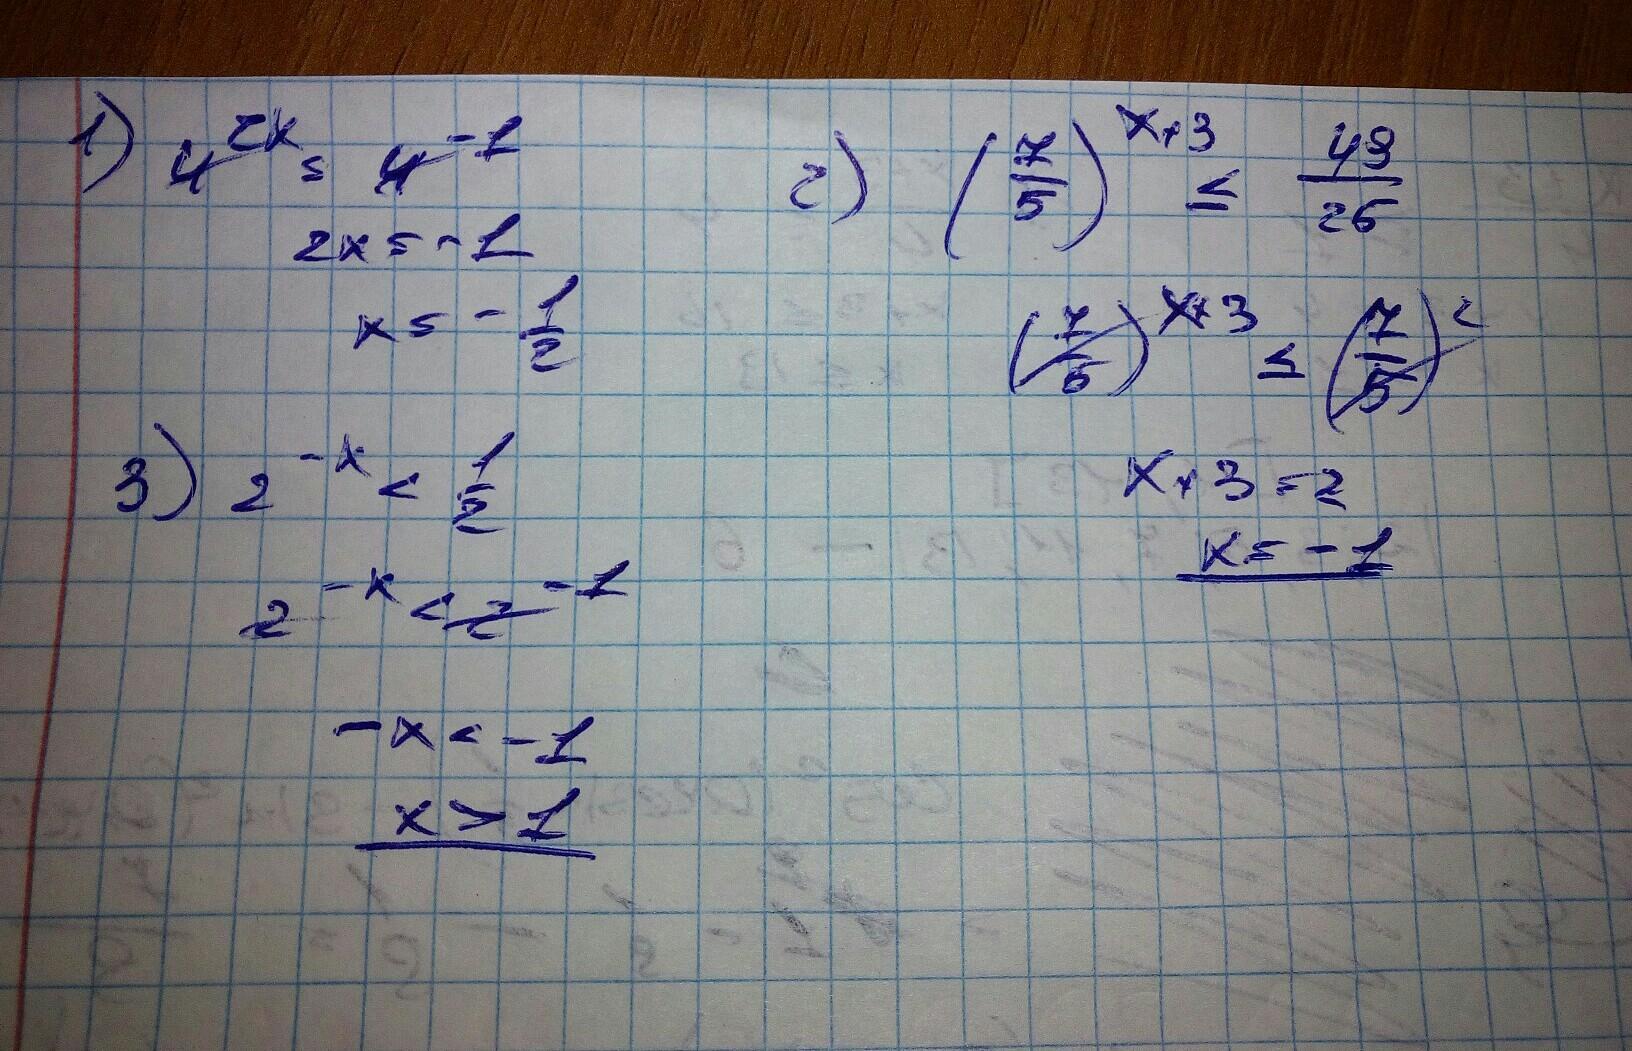 1) 4^{2x} = 4^{-1}
2x = -1
x = -\frac{1}{2}
2) \left(\frac{7}{5}\right)^{x+3} ≤ \frac{49}{25}
\left(\frac{7}{5}\right)^{x+3} ≤ \left(\frac{7}{5}\right)^{2}
x+3 = 2
x = -1
3) 2^{-x} < \frac{1}{2}
2^{-x} < 2^{-1}
-x < -1
x > 1